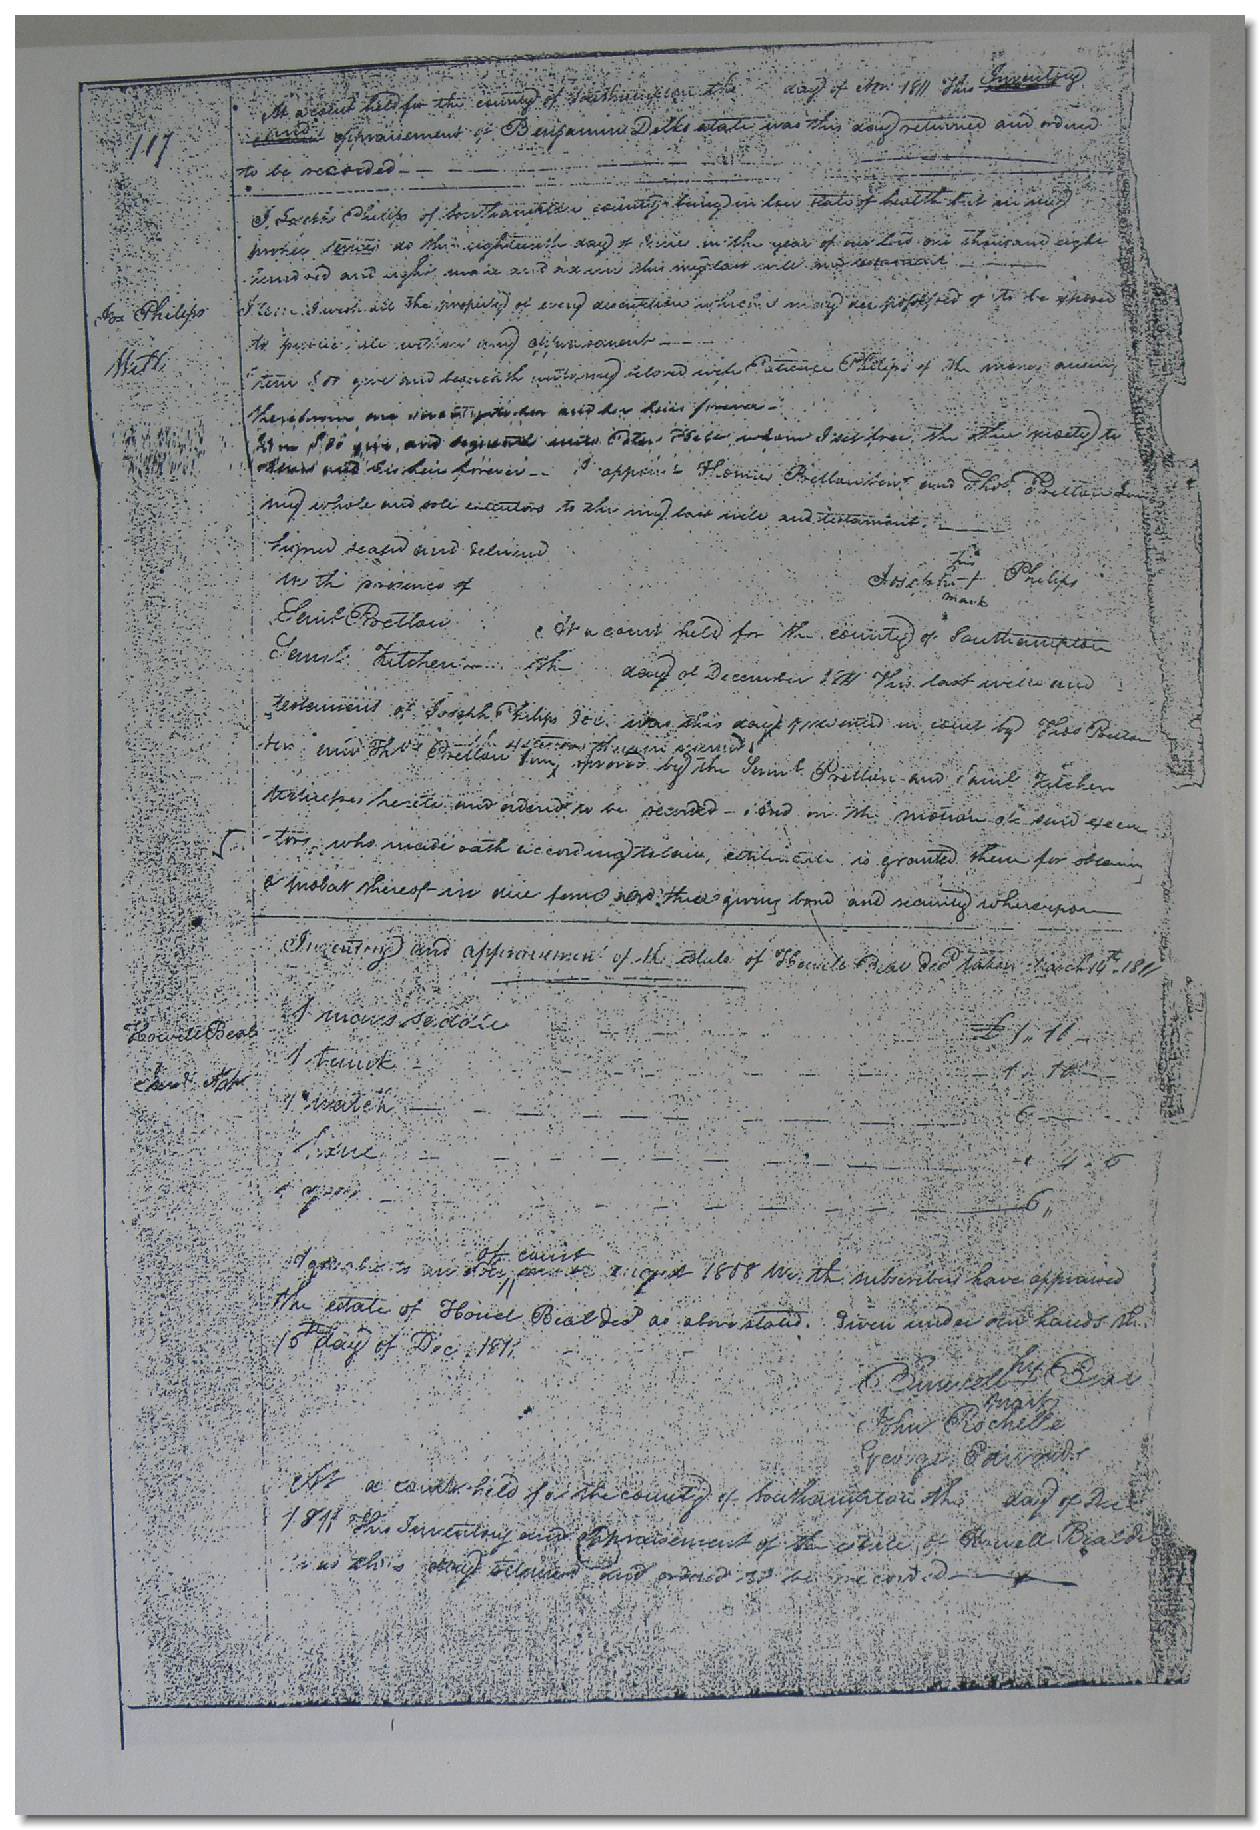 At a court held for the county of Southampton the day of Nov. 1811 This Inventory
and appraisement of Benjamin Delks estate was this day returned and ordered
to be recorded
117
I Joseph Philips of Southampton county being in low state of health but in my
proper senses do this eighteenth day of June in the year of our Lord one thousand eight
hundred and eight make and this my last will and testament
Jos Philips
Will
Item I wish all the property of every description which I may be possessed of to be exposed
to public sale without any appraisement
Item I do give and bequeath unto my beloved wife Patience Philips of the money arising
therefrom one moiety to her and her heirs forever
Item I do give and bequeath unto Peter whom I set free the other moiety to
and his heirs forever I appoint Pretlow Senr. and Thos. Pretlow Junr
my whole and sole executors to this my last will and testament
Signed sealed and delivered
in the presence of
his
Joseph + Philips
mark
Saml. Pretlow
Saml. Kitchen
At a court held for the county of Southampton
the day of December 1811 This last will and
testament of Joseph Philips dec. was this day presented in court by Thos Pretlow
and Thos Pretlow Jun the executors therein named proved by the Saml. Pretlow and Saml. Kitchen
witnesses hereto and ordered to be recorded - And on the motion of said execu
-tors, who made oath according to law, certificate is granted them for obtaining
a probat thereof in due form giving bond and security whereupon
Inventory and appraisement of the estate of Howell Beal decd taken March 14th. 1811
Howell Beal
Invt. App
1 mans saddle £1. 16
1 trunk 1. 10
1 watch 6
4. 6
6,,
Agreeable to an order of court august 1808 We the subscribers have appraised
the estate of Howel Beal decd as above stated. Given under our hands this
16th day of Dec. 1811.
his
Burwell + Beal
mark
John Rochelle
George Edwards
At a court held for the county of Southampton the day of Dec
1811 This Inventory and appraisement of the estate of Howell Beal dec
was this day returned and ordered to be recorded